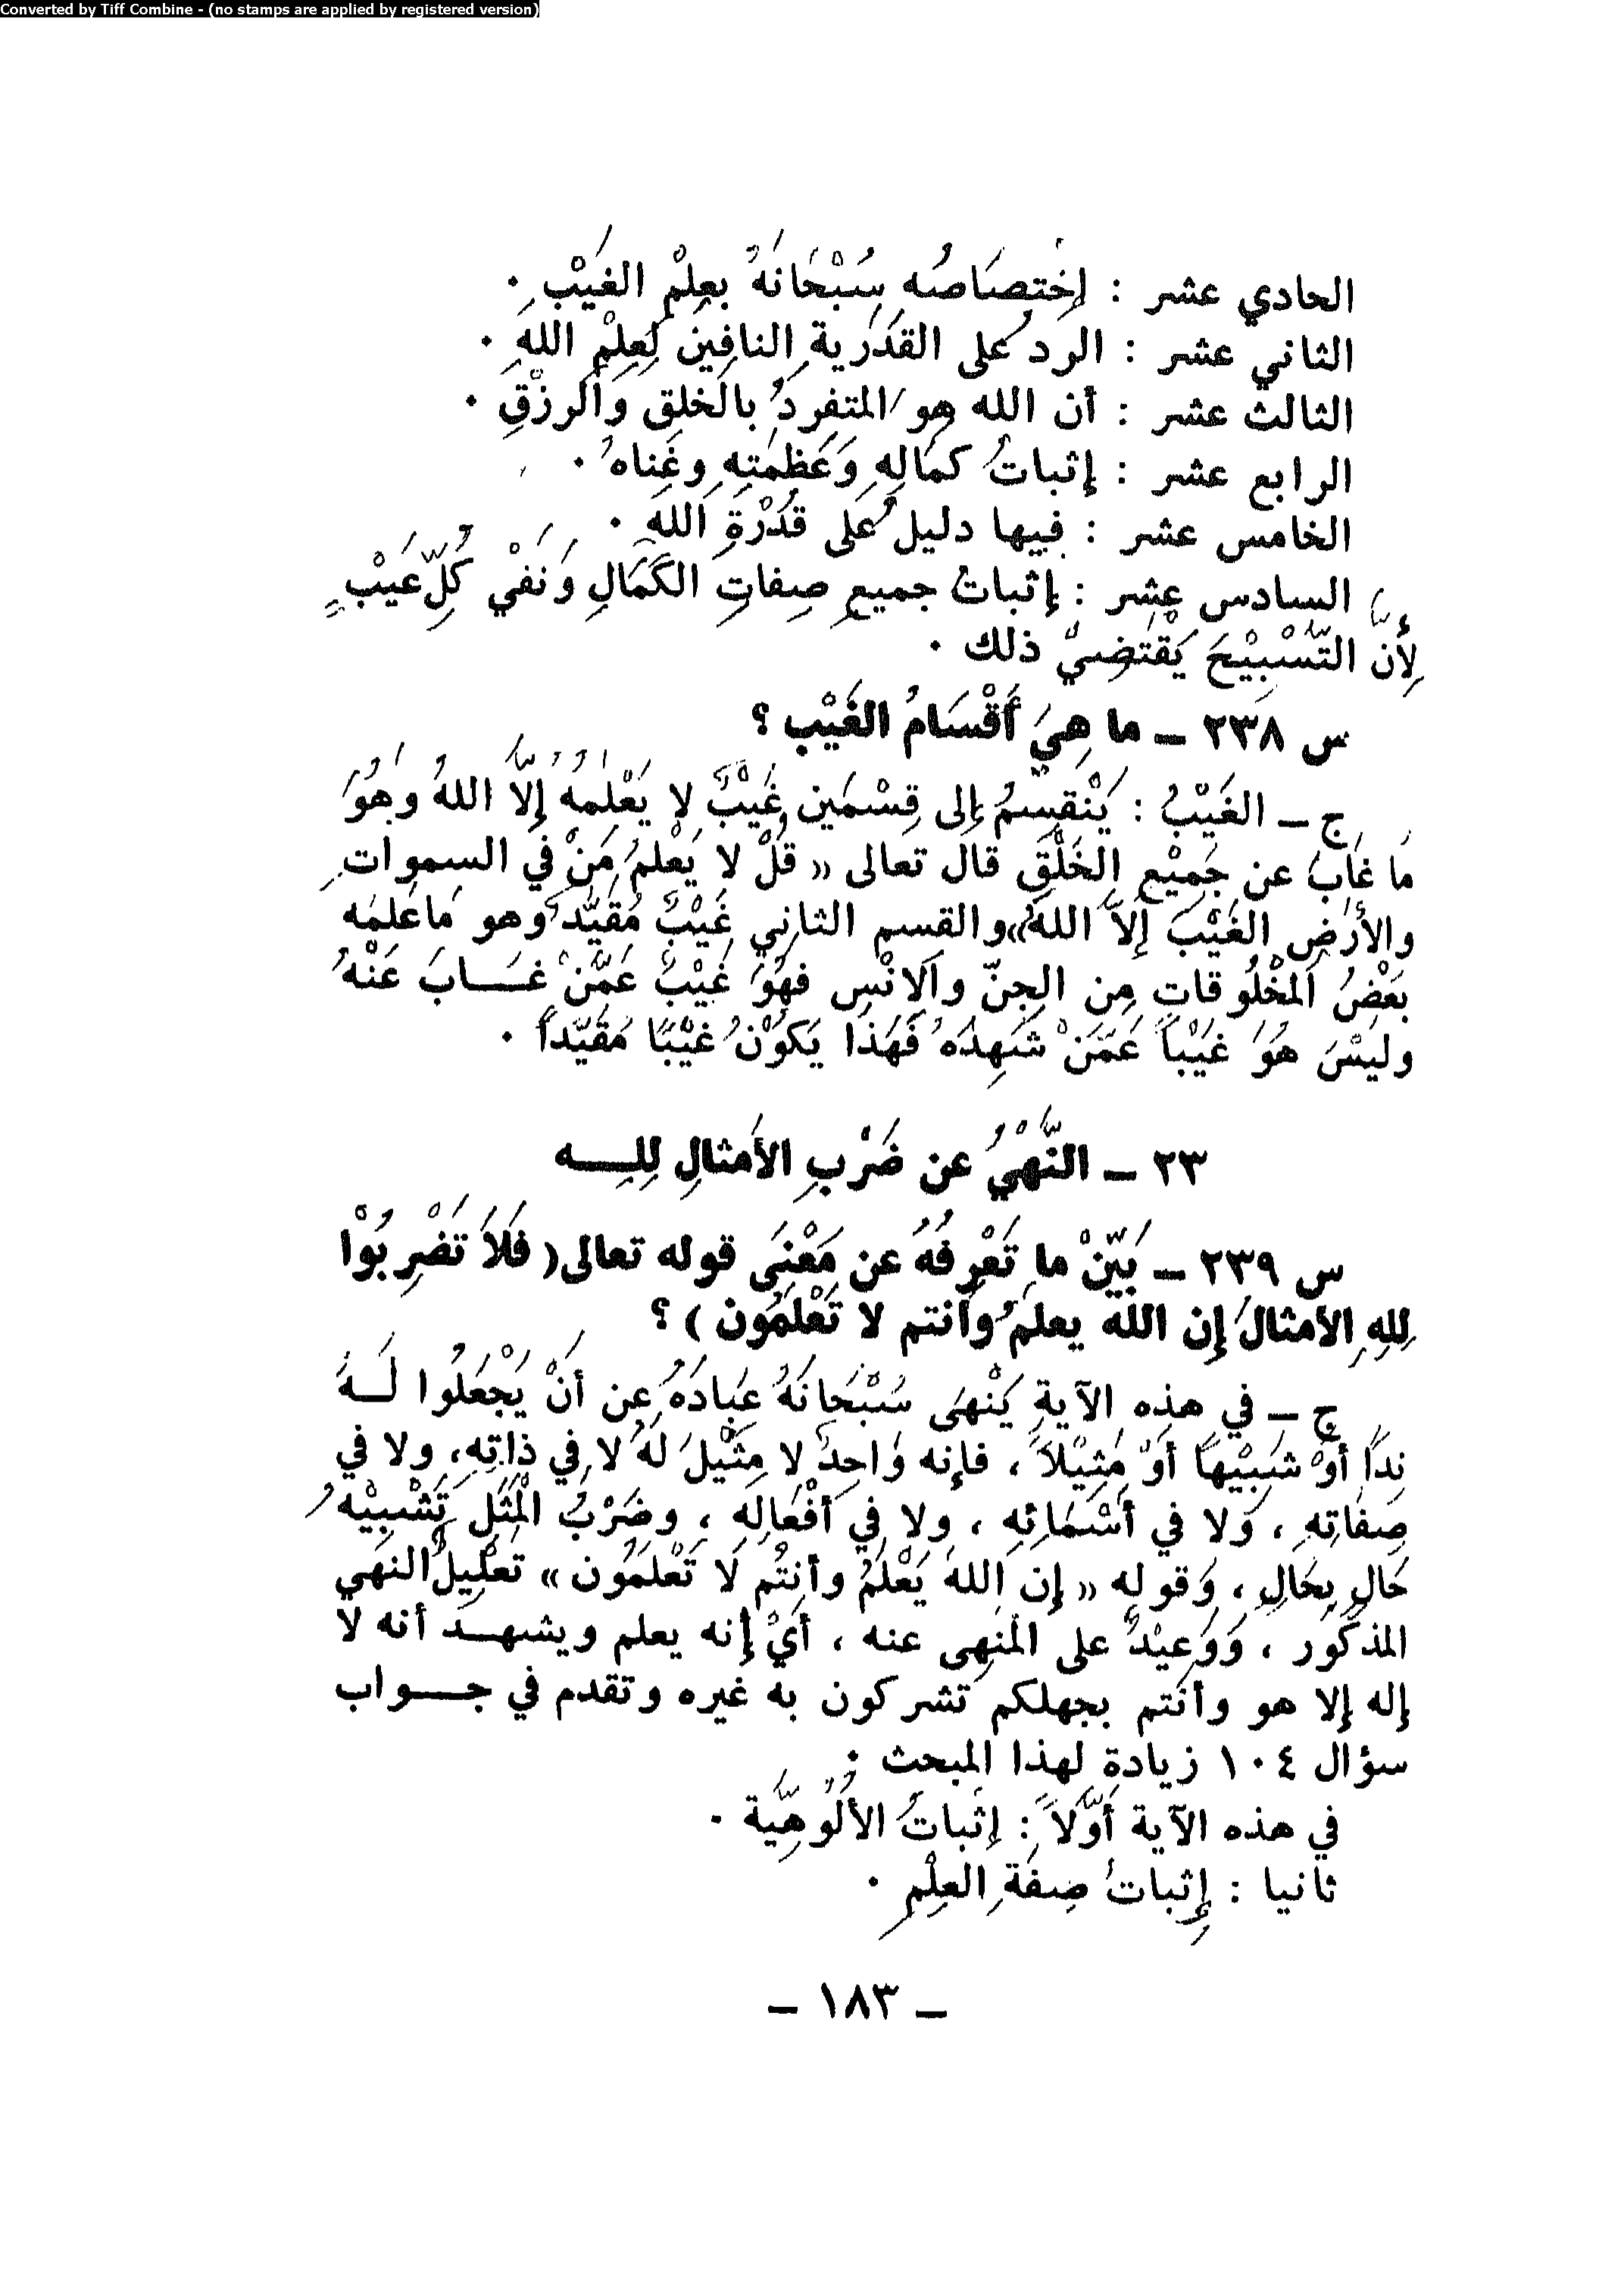 Converted by Tiff Combine - (no stamps are applied by registered version)
الحادي عشر : إخْتِصَاصُه سُبْحَانَهُ بعِلْمِ الغَيْبِ .
الثاني عشر : الرد عُلى القَدَرية النافِينَ لِعِلْمِ اللهِ .
الثالث عشر : أن الله هو المتفردُ بالخلق والرزْقِ .
الرابع عشر : إثباتُ كمالِهِ وَعَظمَتِهِ وغَناهُ .
الخامس عشر : فيها دليلٌ عَلى قُدْرَةِ اللهِ .
السادس عشر : إثباتُ جميعِ صِفاتِ الكَمَالِ وَنَفْيُ كُلِّ عَيْبٍ
لِأَنَّ التَّسْبِيْحَ يَقْتَضِيْ ذلك .
س ٢٣٨ – ما هِيَ أَقْسَامُ الغَيْبِ ؟
ج – الغَيْبُ : يَنْقَسِمُ إلى قِسْمَين غَيْبٌ لا يَعْلَمُهُ إلَّا اللهُ وَهُوَ
مَا غَابَ عن جَمِيْعِ الخَلْقِ قال تعالى « قُلْ لا يَعْلمُ مَنْ في السموات
والأرْضِ الغَيْبَ إلاَّ اللهُ» والقسم الثاني غَيْبٌ مُقَيَّدٌ وهو مَا عَلمَه
بَعْضُ المَخْلُوقاتِ مِن الجِنّ والانْسِ فهُوَ غَيْبٌ عَمَّنْ غَـابَ عَنْهُ
وليْسَ هُوَ غَيْباً عَمَّنْ شَهِدَهُ فَهَذا يَكوْنُ غَيْبًا مُقَيَّداً .
٢٣ – النَّهْيُ عن ضَرْبِ الأمثالِ لِلـهِ
س ٢٣٩ – بَيِّنْ ما تَعْرِفُهُ عن مَعْنَى قوله تعالى ( فَلاَ تَضْرِبُوْا
لِلهِ الأمثالَ إن الله يعلمُ وأنتم لا تَعْلَمُون ) ؟
ج – في هذه الآيةِ يَنْهَى سُبْحَانَهُ عِبادَهُ عن أنْ يَجْعَلُوا لَـهُ
نِدًا أوْ شَبِيْهاً أوْ مَثِيْلاً ، فإنه وَاحِدٌ لا مَثِيْلَ لَهُ لا في ذاتِهِ، ولا في
صِفاتِهِ ، وَلا في أَسْمَائِهِ ، ولا في أفْعَالِهِ ، وضَرْبُ المْثَلِ تَشْبِيْهُ
حَالٍ بِحَالٍ ، وَقوله « إن اللهَ يَعْلَمُ وأنتُم لَا تَعْلَمُون » تعْلِيلٌ النهي
المذكورِ ، وَوَعِيْدٌ على المَنْهِى عنه ، أيْ إنه يعلم ويشهـد أنه لا
إله إلا هو وأنتم بجهلكم تشركون به غيره وتقدم في جـواب
سؤال ١٠٤ زيادة لهذا المبحث .
في هذه الآية أَوَّلاً : إثباتُ الأُلُوهِيَّة .
ثانيا : إثباتُ صِفَةِ العِلْمِ .
– ١٨٣ –